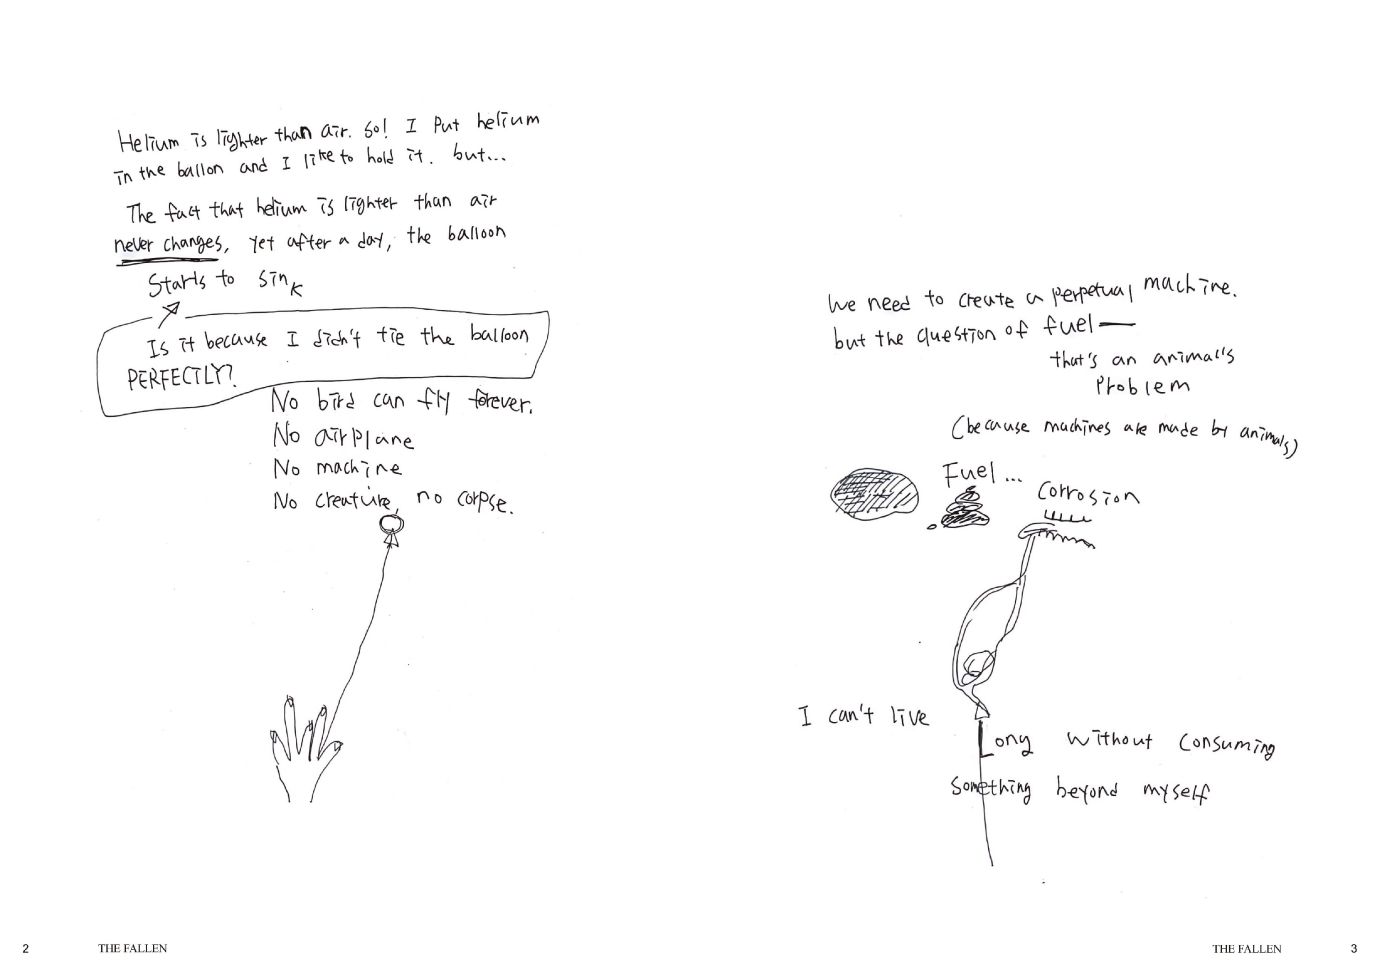 Helium is lighter than air. So! I put helium
in the ballon and I like to hold it. but...
The fact that helium is lighter than air
never changes, yet after a day, the balloon
starts to sink
Is it because I didn't tie the balloon
PERFECTLY?
No bird can fly forever.
No airplane
No machine
No creature, no corpse.
2
THE FALLEN
We need to create a perpetual machine.
but the question of fuel—
that's an animal's
problem
(because machines are made by animals)
Fuel...
Corrosion
I can't live
Long without consuming
something beyond myself
THE FALLEN
3